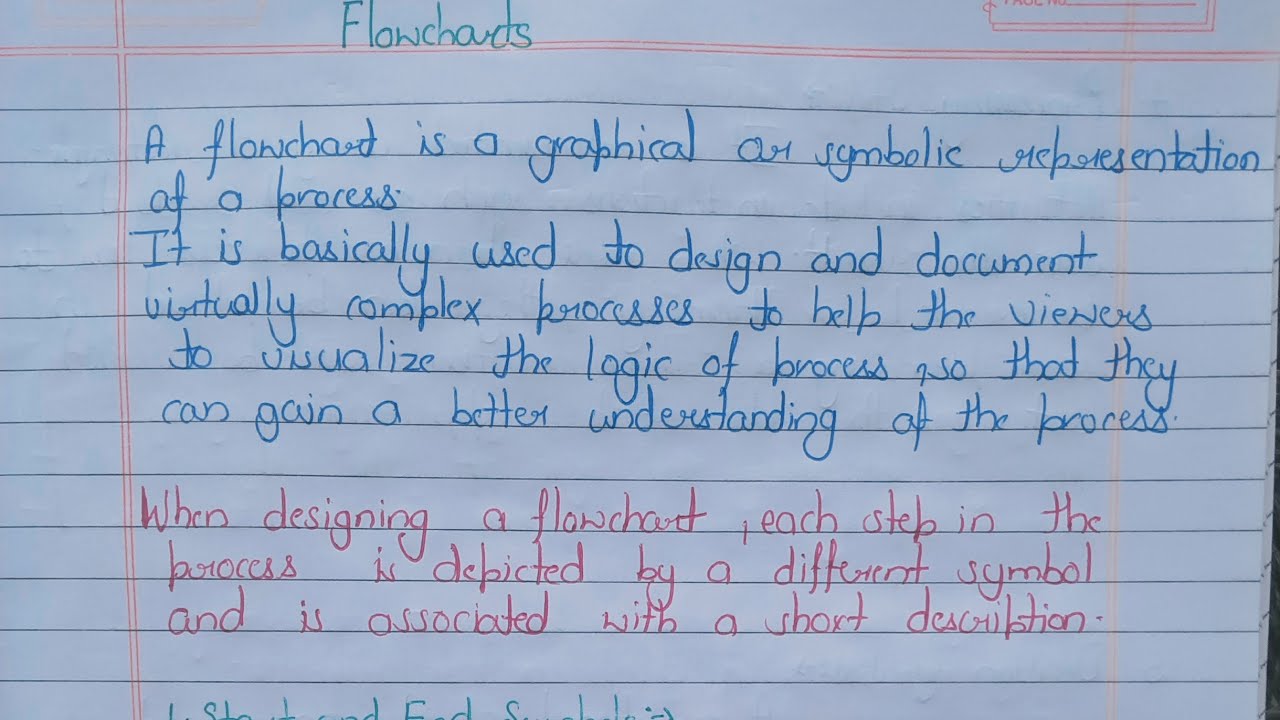 PAGE NO.
Flowcharts
A flowchart is a graphical or symbolic representation
of a process.
It is basically used to design and document
virtually complex processes to help the viewers
to visualize the logic of process, so that they
can gain a better understanding of the process.
When designing a flowchart, each step in the
process is depicted by a different symbol
and is associated with a short description.
1. Start and End Symbols:→